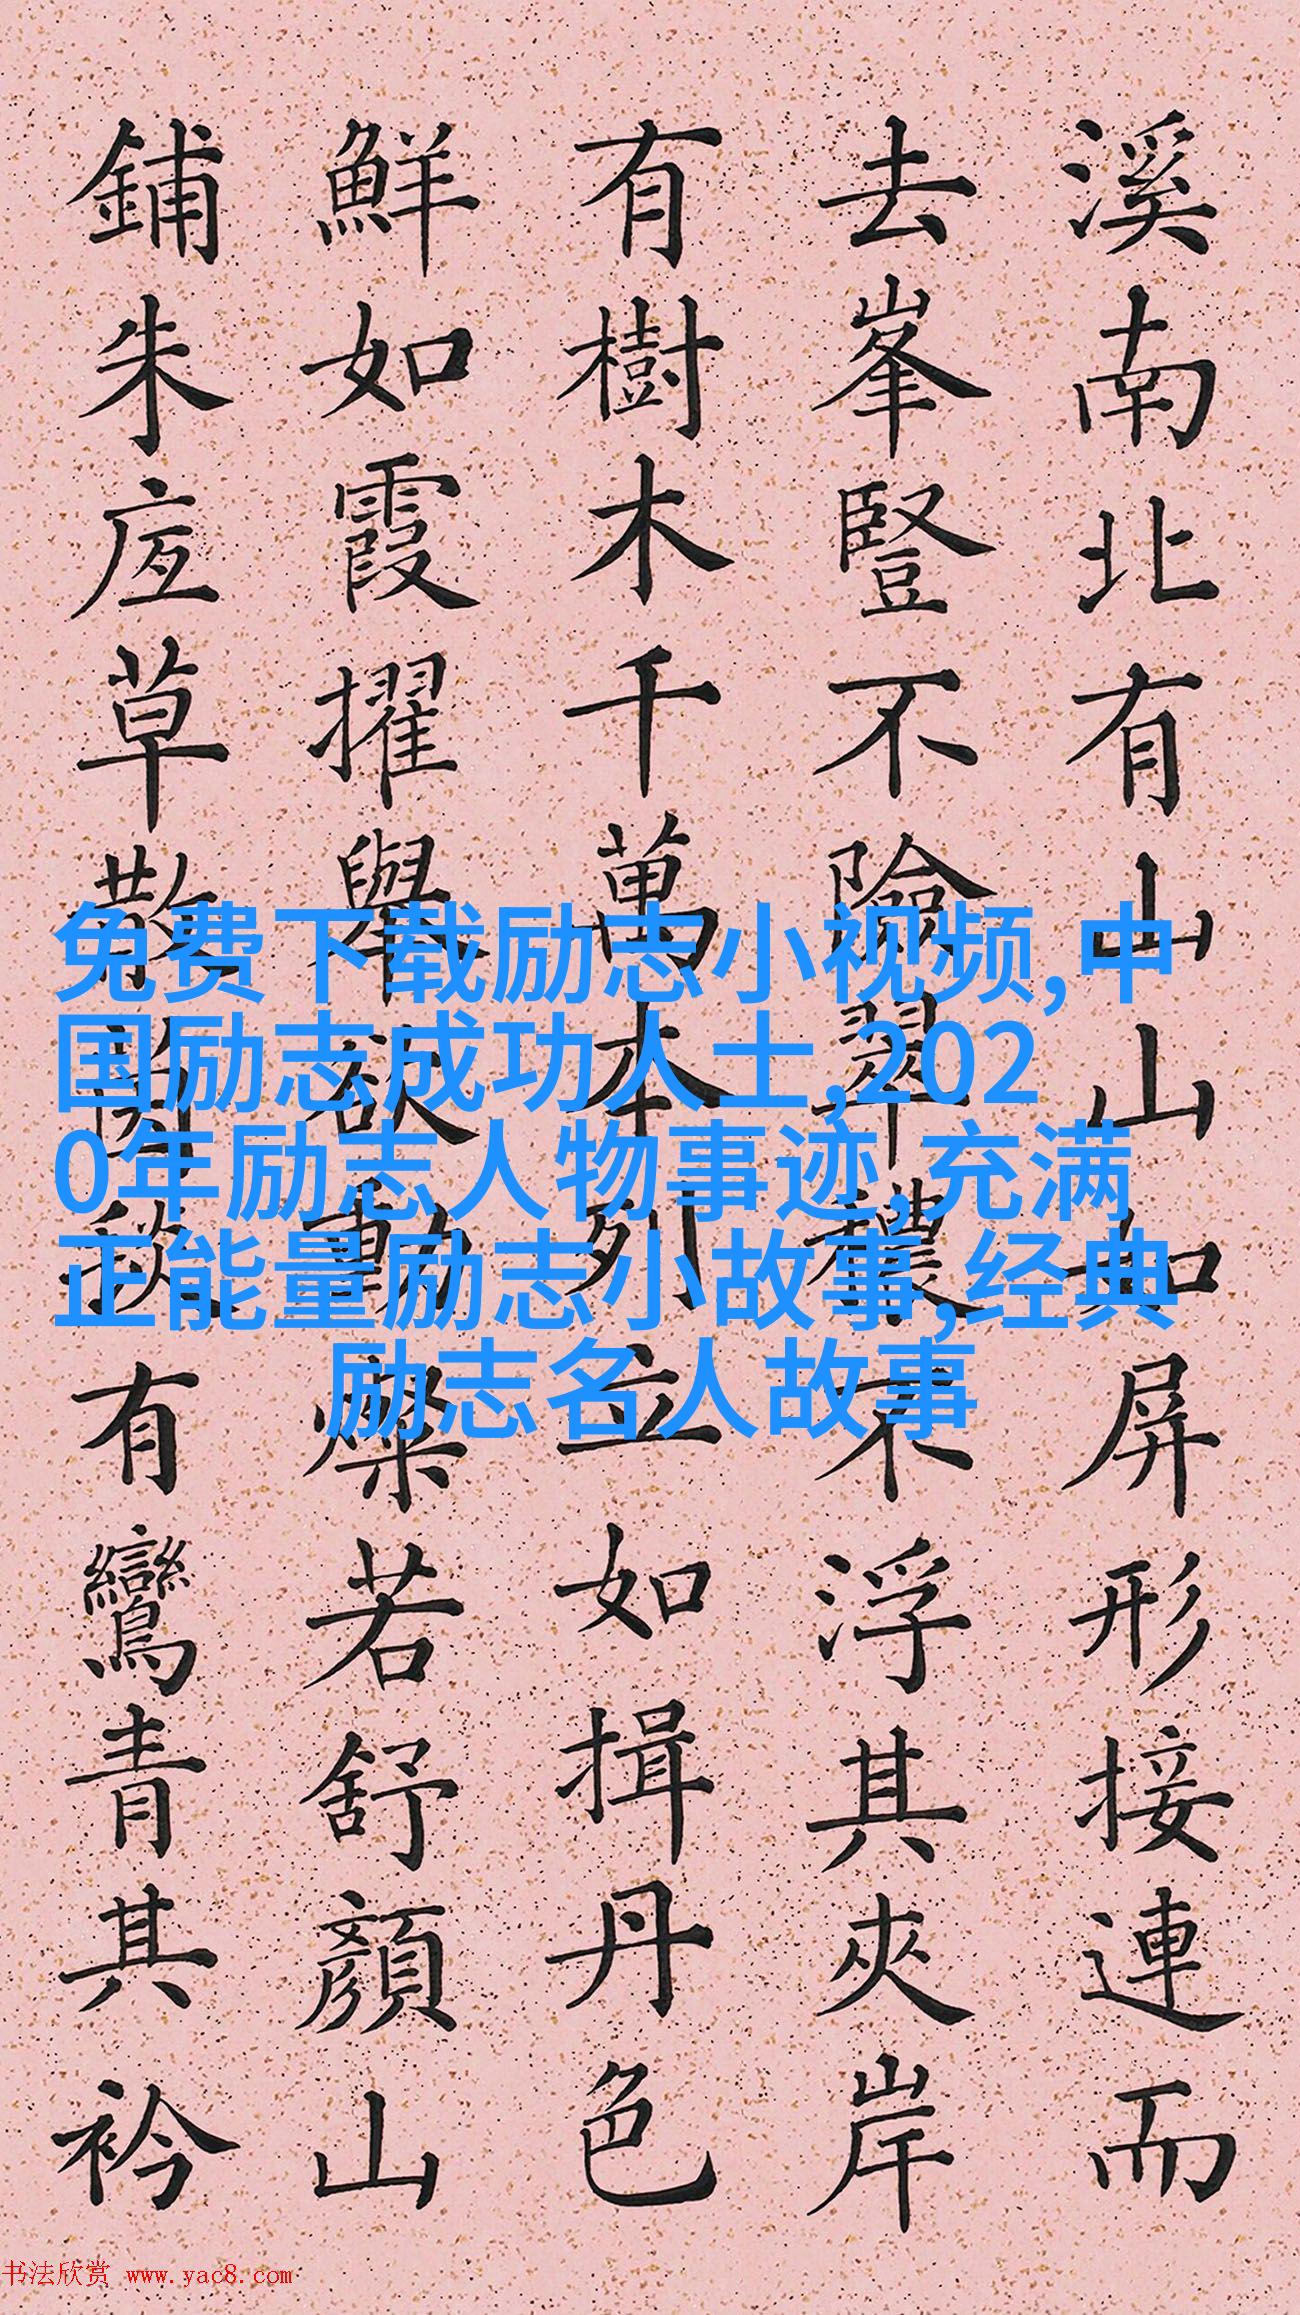 溪南北有山山如屏形接連而
去峯豎不險翠穠不浮其夾岸
有樹木千萬本列立如揖丹色
鮮如霞擢舉欲動燦若舒顏山
鋪朱底草散茵毯有鸞青其衿
免费下载励志小视频,中
国励志成功人士,202
0年励志人物事迹,充满
正能量励志小故事,经典
励志名人故事
书法欣赏 www.yac8.com